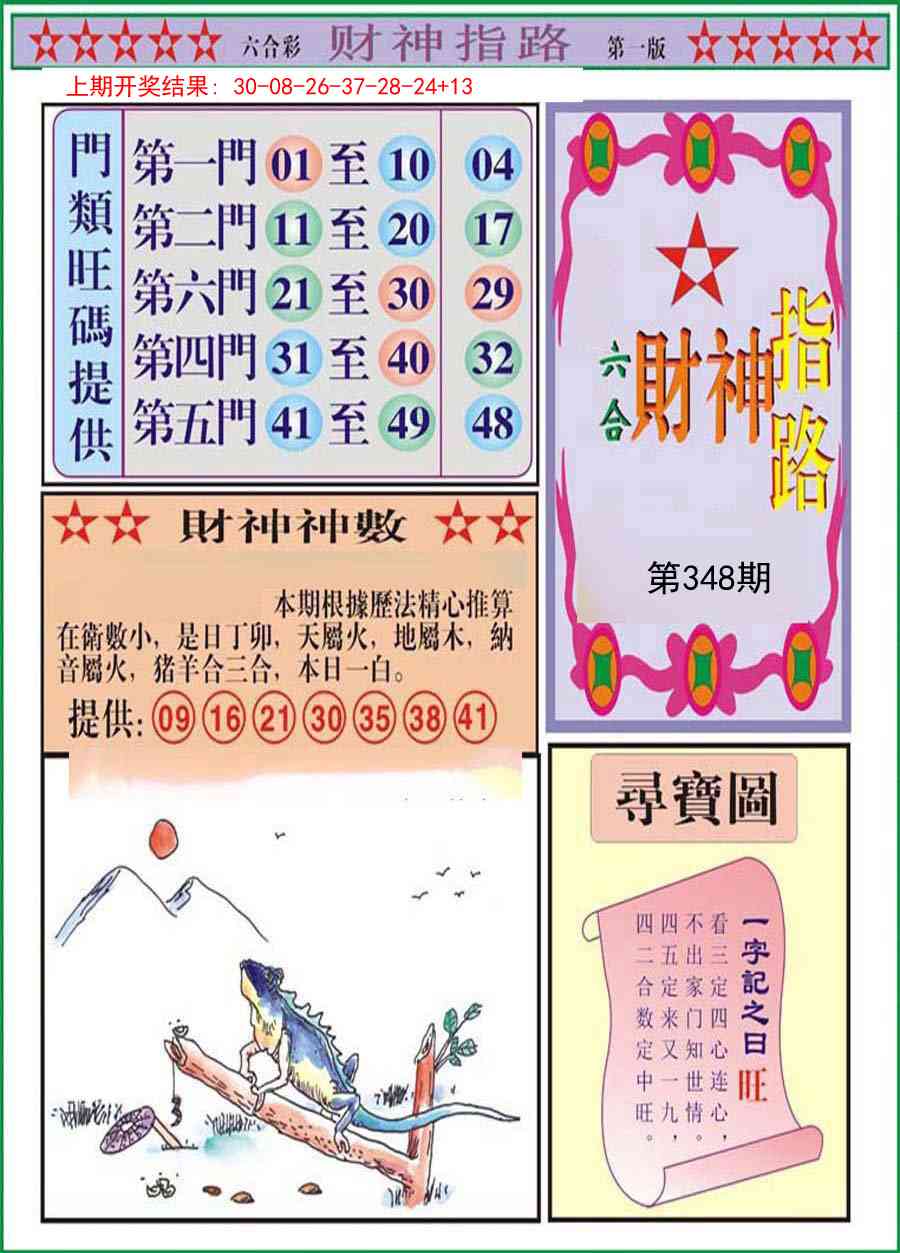 六合彩 财神指路 第一版
上期开奖结果：30-08-26-37-28-24+13
門類旺碼提供
第一門 01 至 10 04
第二門 11 至 20 17
第六門 21 至 30 29
第四門 31 至 40 32
第五門 41 至 49 48
六合 財神指路
第348期
財神神數
本期根據歷法精心推算
在衛數小，是日丁卯，天屬火，地屬木，納
音屬火，猪羊合三合，本日一白。
提供: 09 16 21 30 35 38 41
尋寶圖
一字記之曰 旺
看三定四心连心，
不出家门知世情。
四五定来又一九，
四二合数定中旺。